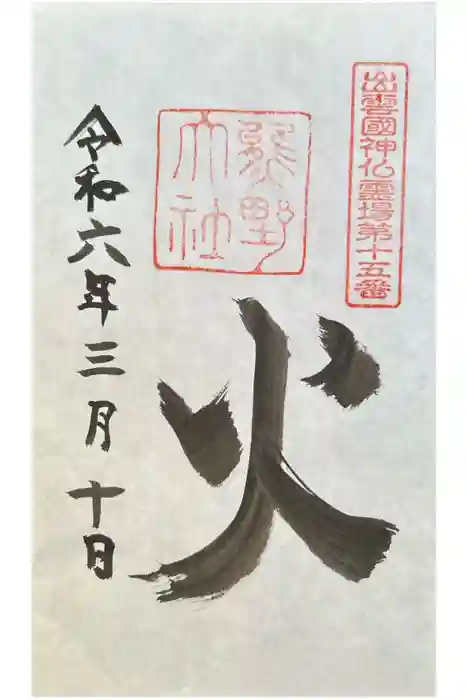 出雲國神仏霊場第十五番
熊野
大社
火
令和六年三月十日